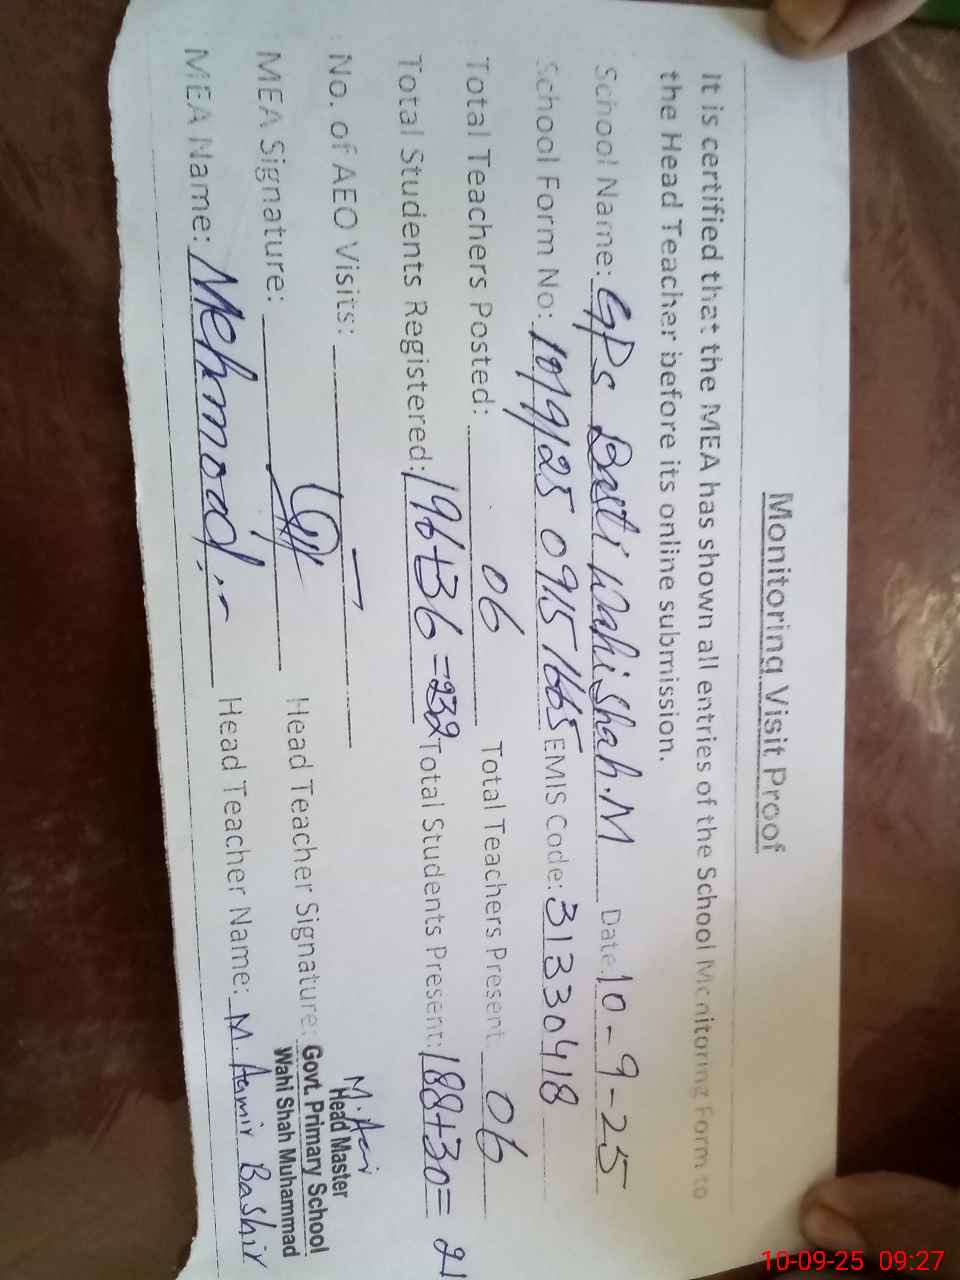 Monitoring Visit Proof
It is certified that the MEA has shown all entries of the School Monitoring Form to
the Head Teacher before its online submission.
School Name: GPS Basti Wahi Shah.M Date: 10-9-25
School Form No: 10/9/25 0915 1665 EMIS Code: 31330418
Total Teachers Posted: 06 Total Teachers Present: 06
Total Students Registered: 196+36=232 Total Students Present: 188+30= 21
No. of AEO Visits: —
MEA Signature: Head Teacher Signature:
Head Master
Govt. Primary School
Wahi Shah Muhammad
MEA Name: Mehmood Head Teacher Name: M. Aamir Bashir
10-09-25 09:27